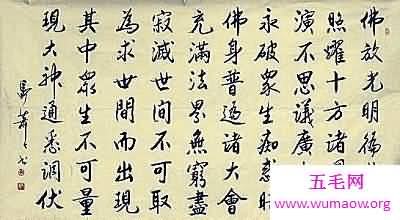 佛放光明徧
照耀十方諸
演不思議廣
永破眾生癡惑
佛身普遍諸大會
充滿法界無窮盡
寂滅世間不可取
為求世間而出現
其中眾生不可量
現大神通悉調伏
五毛网
www.wumaow.org